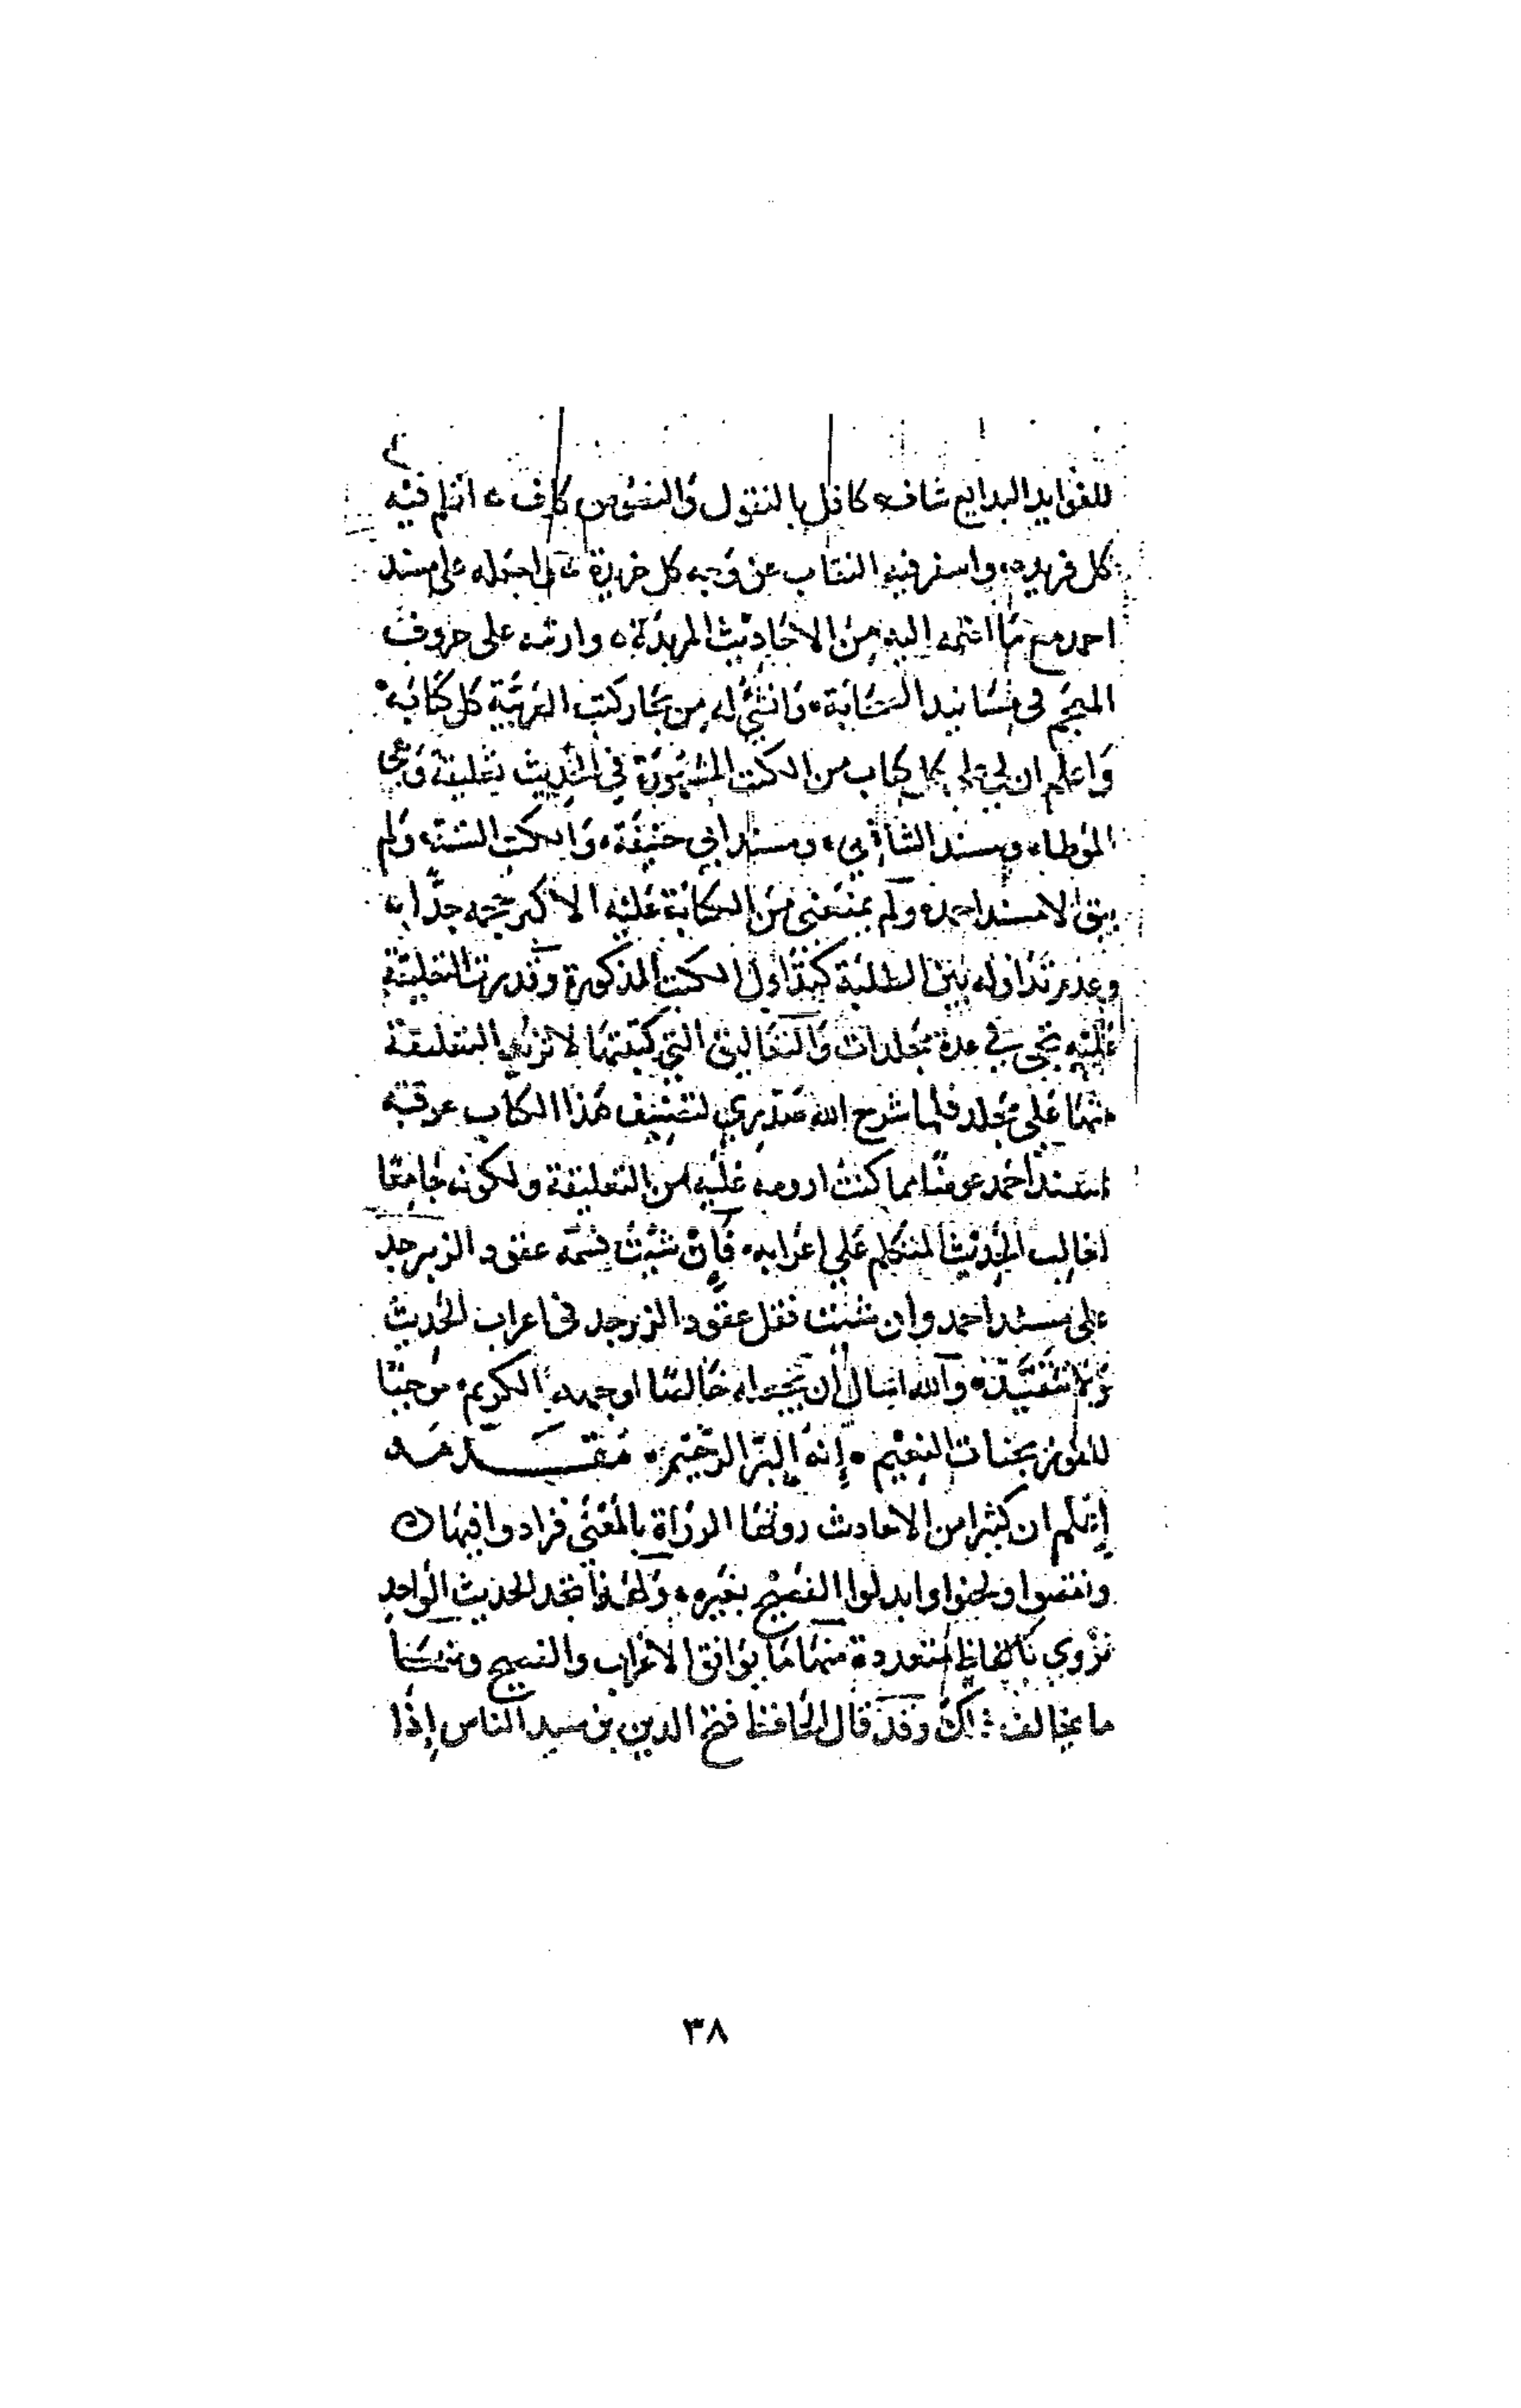 للفوايد البدايع شاف، كافل بالنقول والنصوص كاف، انظم فيه
كل فريدة، واسفر فيه النقاب عن وجه كل خريدة، اجعله على مسند
احمد مع ما اضمه اليه من الاحاديث المزيدة، وارتبه على حروف
المعجم في مسانيد الصحابة، وانشئ له من بحار كتب العربية كل
واعلم ان لي على كل كتاب من الكتب المشهورة في الحديث تعليقة وهي
الموطا، ومسند الشافعي، ومسند ابي حنيفة، والكتب الستة، ولم
يبق الا مسند احمد، ولم يمنعني من الكتابة عليه الا كبر حجمه جدا،
وعدم تداوله بين الطلبة كتداول الكتب المذكورة وقدرت التعليقة
عليه تجي في عدة مجلدات والتعاليق التي كتبتها لا تزيد التعليقة
منها على مجلد فلما شرح الله صدري لتصنيف هذا الكتاب
بمسند احمد عوضا مما كنت ارومه عليه من التعليقة ولكونه جامعا
لغالب الحديث المتكلم على اعرابه، فان شئت فسمه عقود الزبرجد
على مسند احمد وان شئت فقل عقود الزبرجد في اعراب الحديث
ولا تتقيد، والله اسال أن يجعله خالصا لوجهه الكريم، موجبا
للفوز بجنات النعيم، إنه البر الرحيم، مقدمه
إعلم ان كثيرا من الاحاديث روتها الرواة بالمعنى فزادوا فيها
ونقصوا ولحنوا وابدلوا الفصيح بغيره، ولهذا تجد الحديث الواحد
تروي بالفاظ متعددة منها ما يوافق الاعراب والفصيح ومنها
ما يخالف ذلك وقد قال الحافظ فتح الدين بن سيد الناس إذا
٣٨